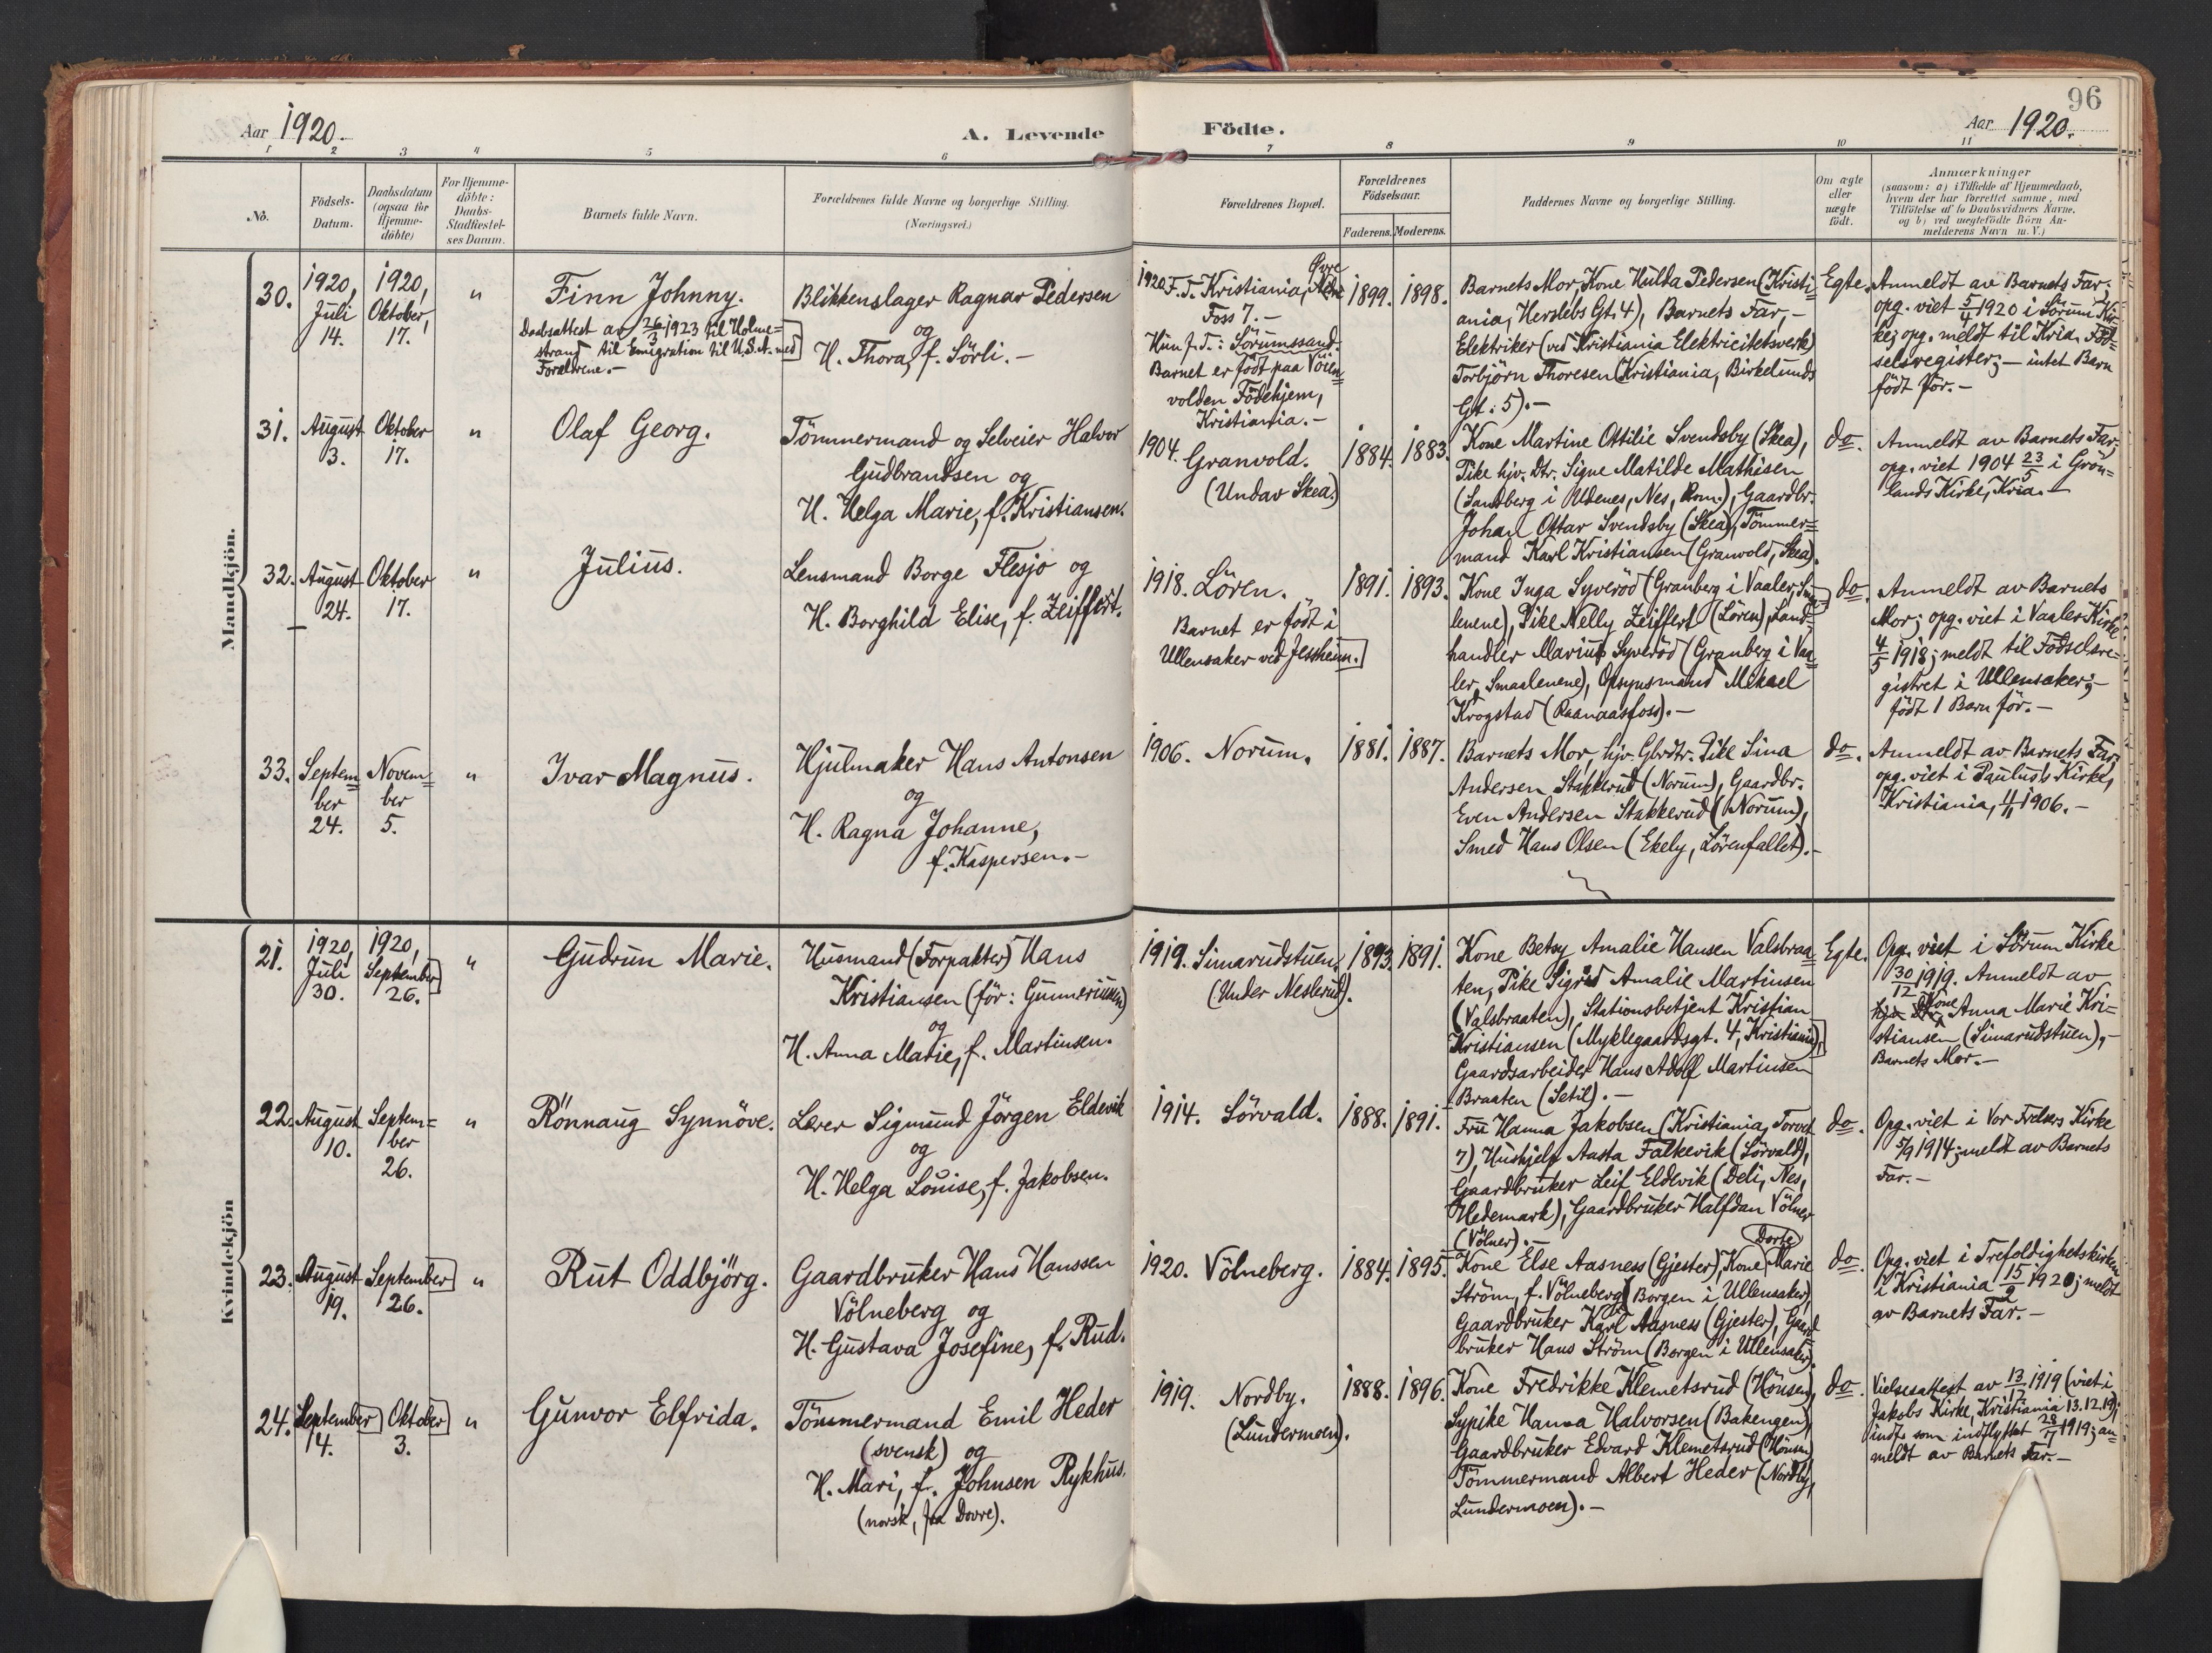 96
Aar 1920.
A. Levende Födte.
Aar 1920.
1 2 3 4 5 6 7 8 9 10 11
No.
Födsels-
Datum.
Daabsdatum
(ogsaa for
Hjemme-
döbte)
For Hjemme-
döbte:
Daabs-
Stadfæstel-
ses Datum.
Barnets fulde Navn.
Forældrenes fulde Navne og borgerlige Stilling.
(Næringsvei.)
Forældrenes Bopæl.
Forældrenes
Födselsaar.
Faderens. Moderens.
Faddernes Navne og borgerlige Stilling.
Om ægte
eller
uægte
födt.
Anmærkninger
(saasom: a) i Tilfælde af Hjemmedaab,
hvem der har forrettet samme, med
Tilföielse af to Daabsvidners Navne,
og b) ved uægtefödte Börn An-
melderens Navn m. V.)
Mandkjön.
30.
1920,
Juli
14.
1920,
Oktober,
17.
"
Finn Johnny.
Daabsattest av 26/3 1923 til Holme=
strand til Emigration til U.S.A. med
Forældrene.-
Blikkenslager Ragnar Pedersen
og
H. Thora, f. Sörli.-
1920 F. T. Kristiania, Øvre
Foss 7.-
Hun f. T.: Sörumssand.
Barnet er født paa Vöien=
volden Födehjem,
Kristiania.-
1899. 1898.
Barnets Mor, Kone Hulda Pedersen (Kristi=
ania, Herslebs Gt. 4), Barnets Far,-
Elektriker (ved Kristiania Elektricitetsverk)
Torbjörn Thoresen (Kristiania, Birkelunds
Gt. 5).-
Egte.
Anmeldt av Barnets Far;
opg. viet 5/4 1920 i Sörum Kir=
ke; opg. meldt til Kria. Föd=
selsregister;- intet Barn
födt för.-
31.
August
3.
Oktober
17.
"
Olaf Georg.
Tömmermand og Selveier Halvor
Gudbrandsen og
H. Helga Marie, f. Kristiansen.
1904. Granvold.
(Undav Skea).
1884. 1883.
Kone Martine Ottilie Svendsby (Skea),
Pike hjv. Dtr. Signe Matilde Mathisen
(Sandberg i Udenes, Nes, Rom.), Gaardbr.
Johan Ottar Svendsby (Skea), Tömmer=
mand Karl Kristiansen (Granvold, Skea).
do.
Anmeldt av Barnets Far;
opg. viet 1904 23/5 i Grön=
lands Kirke, Kria.-
32.
August
24.
Oktober
17.
"
Julius.
Lensmand Borge Flesjø og
H. Borghild Elise, f. Zeiffert.
1918. Lören.
Barnet er født i
Ullensaker ved Jessheim.
1891. 1893.
Kone Inga Syveröd (Granberg i Vaaler, Smaa
lenene), Pike Nelly Zeiffert (Lören), Land=
handler Marius Syveröd (Granberg i Vaa=
ler, Smaalenene), Opsynsmand Mikael
Krogstad (Raanaasfoss).-
do.
Anmeldt av Barnets
Mor; opg. viet i Vaaler Kirke
4/5 1918; meldt til Födselsre=
gistret i Ullensaker;-
födt 1 Barn för.-
33.
Septem=
ber
24.
Novem=
ber
5.
"
Ivar Magnus.
Hjulmaker Hans Antonsen
og
H. Ragna Johanne,
f. Kaspersen.-
1906. Norum.
1881. 1887.
Barnets Mor, hjv. Gbrdtr. Pike Sina
Andersen Stakkerud (Norum), Gaardbr.
Even Andersen Stakkerud (Norum),
Smed Hans Olsen (Ekely, Lörenfallet).-
do.
Anmeldt av Barnets Far;
opg. viet i Paulus's Kirke,
Kristiania, 4/11 1906.-
Kvindekjön
21.
1920,
Juli
30.
1920,
September
26.
"
Gudrun Marie.
Husmand (Forpakter) Hans
Kristiansen (för: Gunneriussen)
og
H. Anna Marie, f. Martinsen.
1919. Simarudstuen.
(Under Neslerud).
1893. 1891.
Kone Betsy Amalie Hansen Valsbraa=
ten, Pike Sigrid Amalie Martinsen
(Valsbraaten), Stationsbetjent Kristian
Kristiansen (Myklegaardsgt. 4, Kristiania),
Gaardsarbeider Hans Adolf Martinsen
Braaten (Setil).-
Egte.
Opg. viet i Sörum Kirke
30/12 1919. Anmeldt av
Kone Anna Marie Kri=
stiansen (Simarudstuen),-
Barnets Mor.-
22.
August
10.
Septem=
ber
26.
"
Rönnaug Synnöve.
Lærer Sigmund Jörgen Eldevik
og
H. Helga Louise, f. Jakobsen.
1914. Sörvald.
1888. 1891.
Fru Hanna Jakobsen (Kristiania, Torvet
7), Hushjelp Aasta Falkevik (Sörvald),
Gaardbruker Leif Eldevik (Deli, Nes,
Hedemark), Gaardbruker Halfdan Völner
(Völner).-
do.
Opg. viet i Vor Frelsers Kirke
5/9 1914; meldt av Barnets
Far.-
23.
August
19.
September
26.
"
Rut Oddbjörg.
Gaardbruker Hans Hanssen
Völneberg og
H. Gustava Josefine, f. Rud.
1920. Völneberg.
1884. 1895.
Kone Else Aasness (Gjester), Kone Dorte Marie
Ström, f. Völneberg (Borgen i Ullensaker),
Gaardbruker Karl Aasness (Gjester), Gaard
bruker Hans Ström (Borgen i Ullensaker).
do.
Opg. viet i Trefoldighetskirken
i Kristiania 15/2 1920; meldt
av Barnets Far.-
24.
September
14.
Oktober
3.
"
Gunvor Elfrida.
Tömmermand Emil Heder
(svensk) og
H. Mari, f. Johnsen Rykhus.
(norsk, fra Dovre).
1919. Nordby.
(Lundermoen).
1888. 1896.
Kone Fredrikke Klemetsrud (Hönsen),
Sypike Hanna Halvorsen (Bakengen),
Gaardbruker Edvard Klemetsrud (Hönsen),
Tömmermand Albert Heder (Nordby,
Lundermoen).-
do.
Vielsesattest av 13/12 1919 (viet i
Jakobs Kirke, Kristiania 13.12.19);
indf. som indflyttet 28/7 1919; an=
meldt av Barnets Far.-